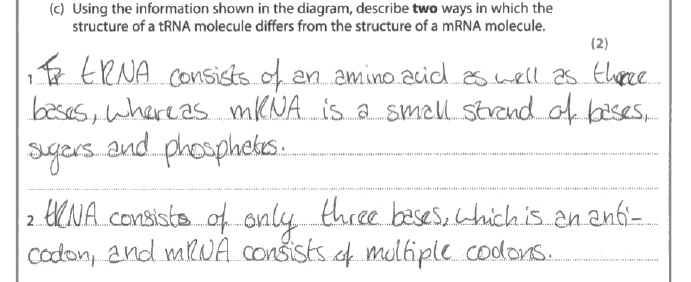 (c) Using the information shown in the diagram, describe two ways in which the
structure of a tRNA molecule differs from the structure of a mRNA molecule.
(2)
1 tRNA consists of an amino acid as well as three
bases, whereas mRNA is a small strand of bases,
sugars and phosphates.
2 tRNA consists of only three bases, which is an anti-
codon, and mRNA consists of multiple codons.